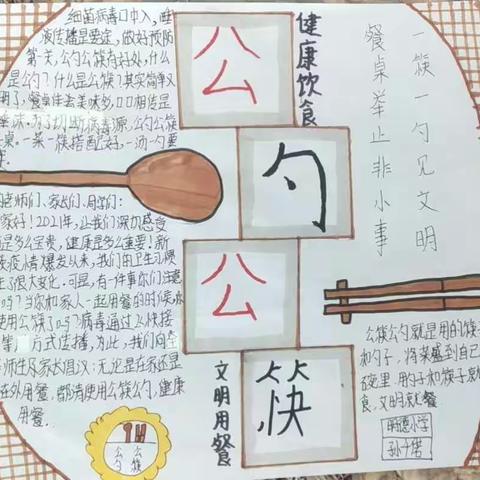 细菌病毒口中入,唾
液传播是要定,做好预防
第一关,公勺公筷有好处,什么
是公勺?什么是公筷?其实简单又
明了,餐桌美味多,口口相传是
味,为了切断病毒源,公勺公筷
桌。一菜一筷搭配好。一汤一勺要
老师们、家长们、同学们:
家好!2021年,让我们深刻感受
是多么宝贵,健康是多么重要!新
疫情爆发以来,我们的卫生习惯
了很大变化。可是,有一件事你们注意
吗?当你和家人一起用餐的时候,
使用公筷了吗?病毒通过接
等)方式传播,为此,我们向全
师生及家长倡议:无论是在家还是
在外用餐,都请使用公筷公勺,健康
用餐。
公勺
公筷
公
勺
公
筷
健康饮食
文明用餐
一筷一勺见文明
餐桌举止非小事
公筷公勺就是用的筷子
和勺子,将菜盛到自己
碗里,用勺子和筷子就
食,文明就餐
明德小学